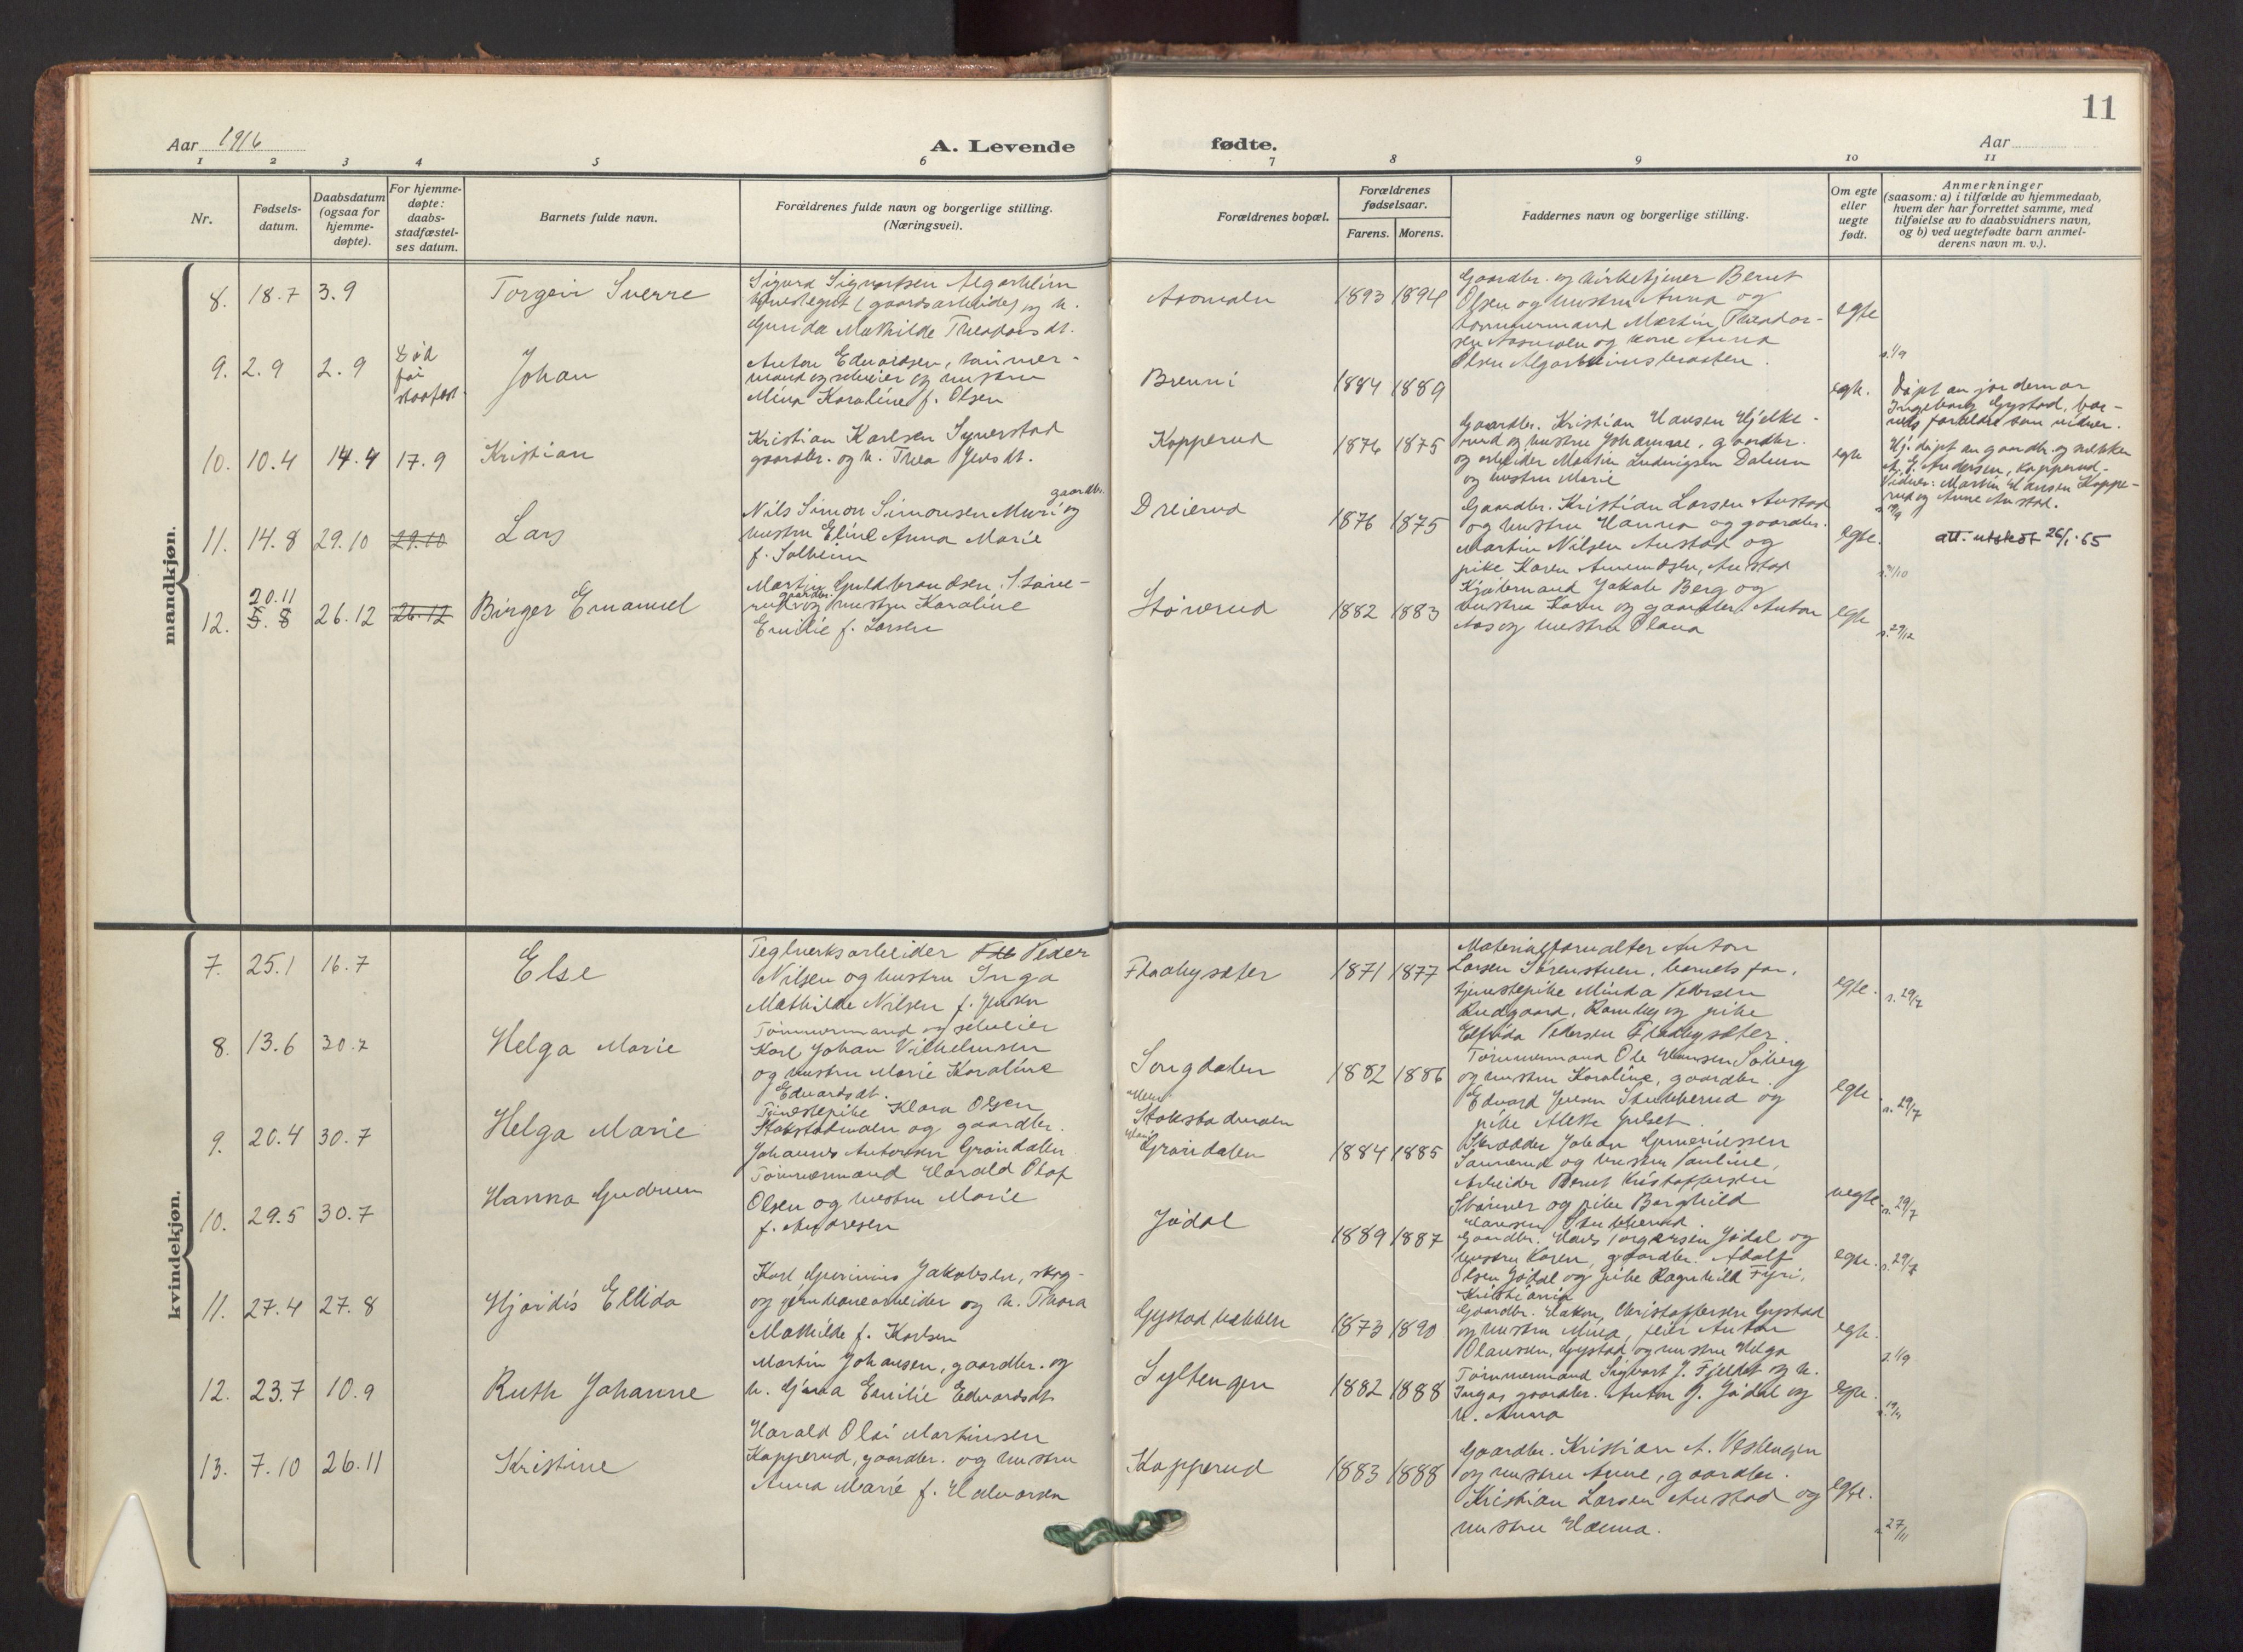 Aar 1916
A. Levende
fødte.
Aar
11
1 2 3 4 5 6 7 8 9 10 11
Nr.
Fødsels-
datum.
Daabsdatum
(ogsaa for
hjemme-
døpte).
For hjemme-
døpte:
daabs-
stadfæstel-
ses datum.
Barnets fulde navn.
Forældrenes fulde navn og borgerlige stilling.
(Næringsvei).
Forældrenes bopæl.
Forældrenes
fødselsaar.
Farens. Morens.
Faddernes navn og borgerlige stilling.
Om egte
eller
uegte
født.
Anmerkninger
(saasom: a) i tilfælde av hjemmedaab,
hvem der har forrettet samme, med
tilføielse av to daabsvidners navn,
og b) ved uegtefødte barn anmel-
derens navn m. v.).
mandkjøn.
8. 18.7 3.9
Torgeir Sverre
Sigurd Sigvartsen Algarheim
(gaardsarbeider) og h.
Gunda Mathilde Theodorsdt.
Aasmoen
1893 1894
Gaardbr. og kirketjener Bernt
Olsen og hustru Anna og
tømmermand Martin Theodor-
sen Aasmoen og kone Anna
Olsen
egte
s. 1/9
9. 2.9 2.9
Død
før
stadfest.
Johan
Anton Edvardsen, tømmer-
mand og selveier og hustru
Mina Karoline f. Olsen
Brenni
1884 1889
egte.
Døpt av jordemor
Ingeborg Gystad, bar-
nets forældre som vidner.
10. 10.4 14.4 17.9
Kristian
Kristian Karlsen Syverstad
gaardbr. og h. Thea Jensdt.
Kopperud
1876 1875
Gaardbr. Kristian Hansen Hjelke-
rud og hustru Johanne, gaardbr.
og arbeider Martin Ludvigsen Dalum
og hustru Marie
egte
Hj. døpt av gaardbr. og snekker
A. E. Andersen, Kopperud.
Vidner: Martin Hansen Koppe-
rud og Anne Austad.
11. 14.8 29.10 29.10
Lars
gaardbr.
Nils Simon Simonsen Muri og
hustru Eline Anna Marie
f. Solheim
Dreierud
1876 1875
Gaardbr. Kristian Larsen Austad
og hustru Hanna og gaardbr.
Martin Nilsen Austad og
pike Karen Amundsen, Austad
egte.
att. utskot 26/1-65
12. 20.11
5. 8 26.12 26.12
Birger Emanuel
Martin Guldbrandsen Støve-
rud gaardbr. og hustru Karoline
Emilie f. Larsen
Støverud
1882 1883
Kjøbmand Jakob Berg og
hustru Karen og gaardbr. Anton
Aas og hustru Olava
egte
s. 29/12
kvindekjøn.
7. 25.1 16.7
Else
Teglverksarbeider Peder
Nilsen og hustru Inga
Mathilde Nilsen f. Jensen
Flaabysæter
1871 1877
Materialforvalter Anton
Larsen Sørenstuen, barnets far,
tjenestepike Minda Pedersen
Rudgaard, Romby og pike
Elfrida Pedersen Flaabysæter.
egte.
s. 29/7
8. 13.6 30.7
Helga Marie
Tømmermand og selveier
Karl Johan Vilhelmsen
og hustru Marie Karoline
Edvardsdt.
Songdalen
1882 1886
Tømmermand Ole Hansen Søberg
og hustru Karoline, gaardbr.
Edvard Jensen Skukkerud og
pike Alette Julset.
egte.
s. 29/7
9. 20.4 30.7
Helga Marie
Tjenestepike Klara Olsen
Stokstadmoen og gaardbr.
Johannes Antonsen Grøndalen
Hun:
Stokstadmoen
Han:
Grøndalen
1884 1885
Skrædder Johan Guneriussen
Sannerud og hustru Pauline,
Arbeider Bernt Kristoffersen
Strønner og pike Borghild
Hansen Skukkerud.
uegte
s. 29/7
10. 29.5 30.7
Hanna Gudrun
Tømmermand Harald Olaf
Olsen og hustru Marie
f. Andresen
Jødal
1889 1887
Gaardbr. Hans Torgersen Jødal og
hustru Karen, gaardbr. Adolf
Olsen Jødal og pike Ragnhild Fyri,
Kristiania
egte.
s. 29/7
11. 27.4 27.8
Hjørdis Ellida
Karl Gunerius Jakobsen, skog-
og jernbanearbeider og h. Thora
Mathilde f. Karlsen
Gystadbakken
1873 1890
Gaardbr. Hakon Christoffersen Gystad
og hustru Mina, feier Anton
Olaussen, Gystad og hustru Helga
egte.
s. 1/9
12. 23.7 10.9
Ruth Johanne
Martin Johansen, gaardbr. og
h. Gina Emilie Edvardsdt.
Syltengen
1882 1888
Tømmermand Sigvart J. Fjeldet og h.
Inga, gaardbr. Anton J. Jødal og
h. Anna
egte.
13. 7.10 26.11
Kristine
Harald Olai Martinsen
Kopperud, gaardbr. og hustru
Anna Marie f. Halvorsen
Kopperud
1883 1888
Gaardbr. Kristian A. Vestengen
og hustru Anne, gaardbr.
Kristian Larsen Austad og
hustru Hanna.
egte.
27/11